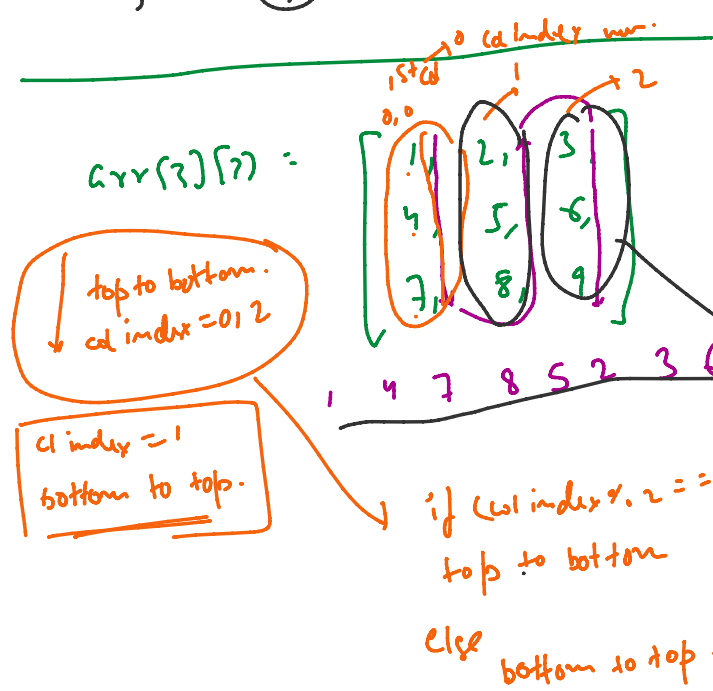 0 col index num.
1st col
1
2
0,0
arr[3][3] =
1, 2, 3
4, 5, 6,
7, 8, 9
top to bottom.
col index = 0, 2
1 4 7 8 5 2 3
cl index = 1
bottom to top.
if (col index % 2 ==
top to bottom
else
bottom to top.